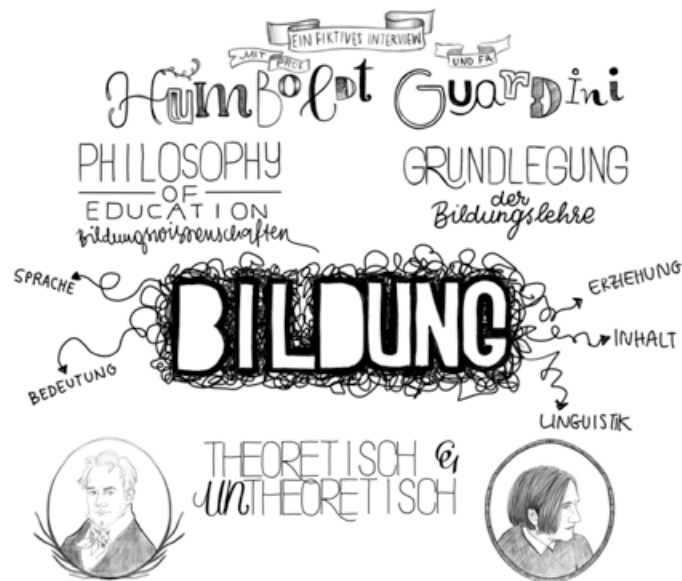 EIN FIKTIVES INTERVIEW
MIT PROF.
UND FA
HumBoldt Guardini
PHILOSOPHY
OF
EDUCATION
Bildungswissenschaften
GRUNDLEGUNG
der
Bildungslehre
SPRACHE
BEDEUTUNG
BILDUNG
ERZIEHUNG
INHALT
LINGUISTIK
THEORETISCH &
UNTHEORETISCH